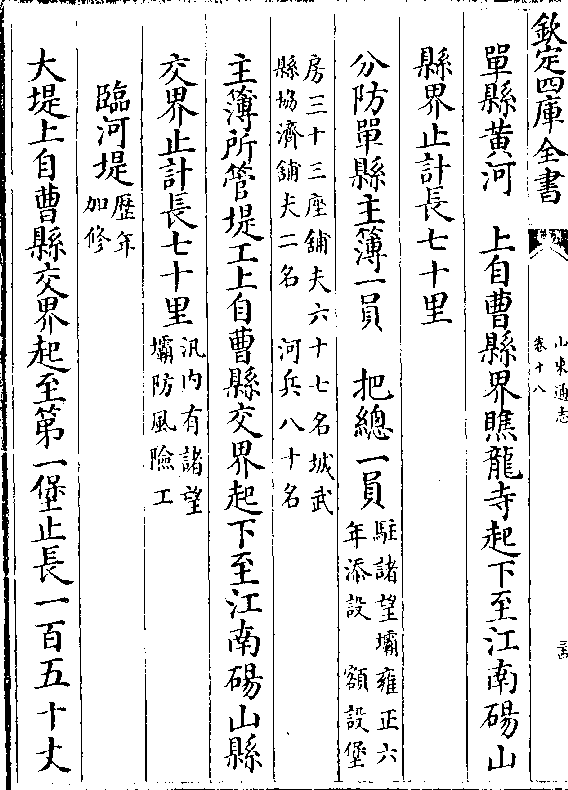 欽定四庫全書
山東通志
卷十八
單縣黃河　上自曹縣界瞧龍寺起下至江南碭山
縣界止計長七十里
分防單縣主簿一員　把總一員
駐諸望壩雍正六
年添設　額設堡
房三十三座舖夫六十七名城武
縣協濟舖夫二名　河兵八十名
主簿所管堤工上自曹縣交界起下至江南碭山縣
交界止計長七十里
汛内有諸望
壩防風險工
臨河堤
歷年
加修
大堤上自曹縣交界起至第一堡止長一百五十丈